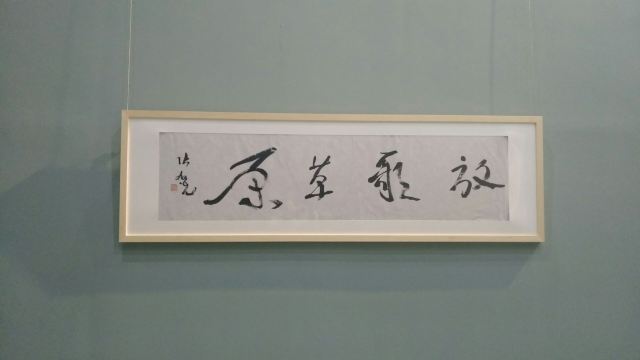 放歌草原